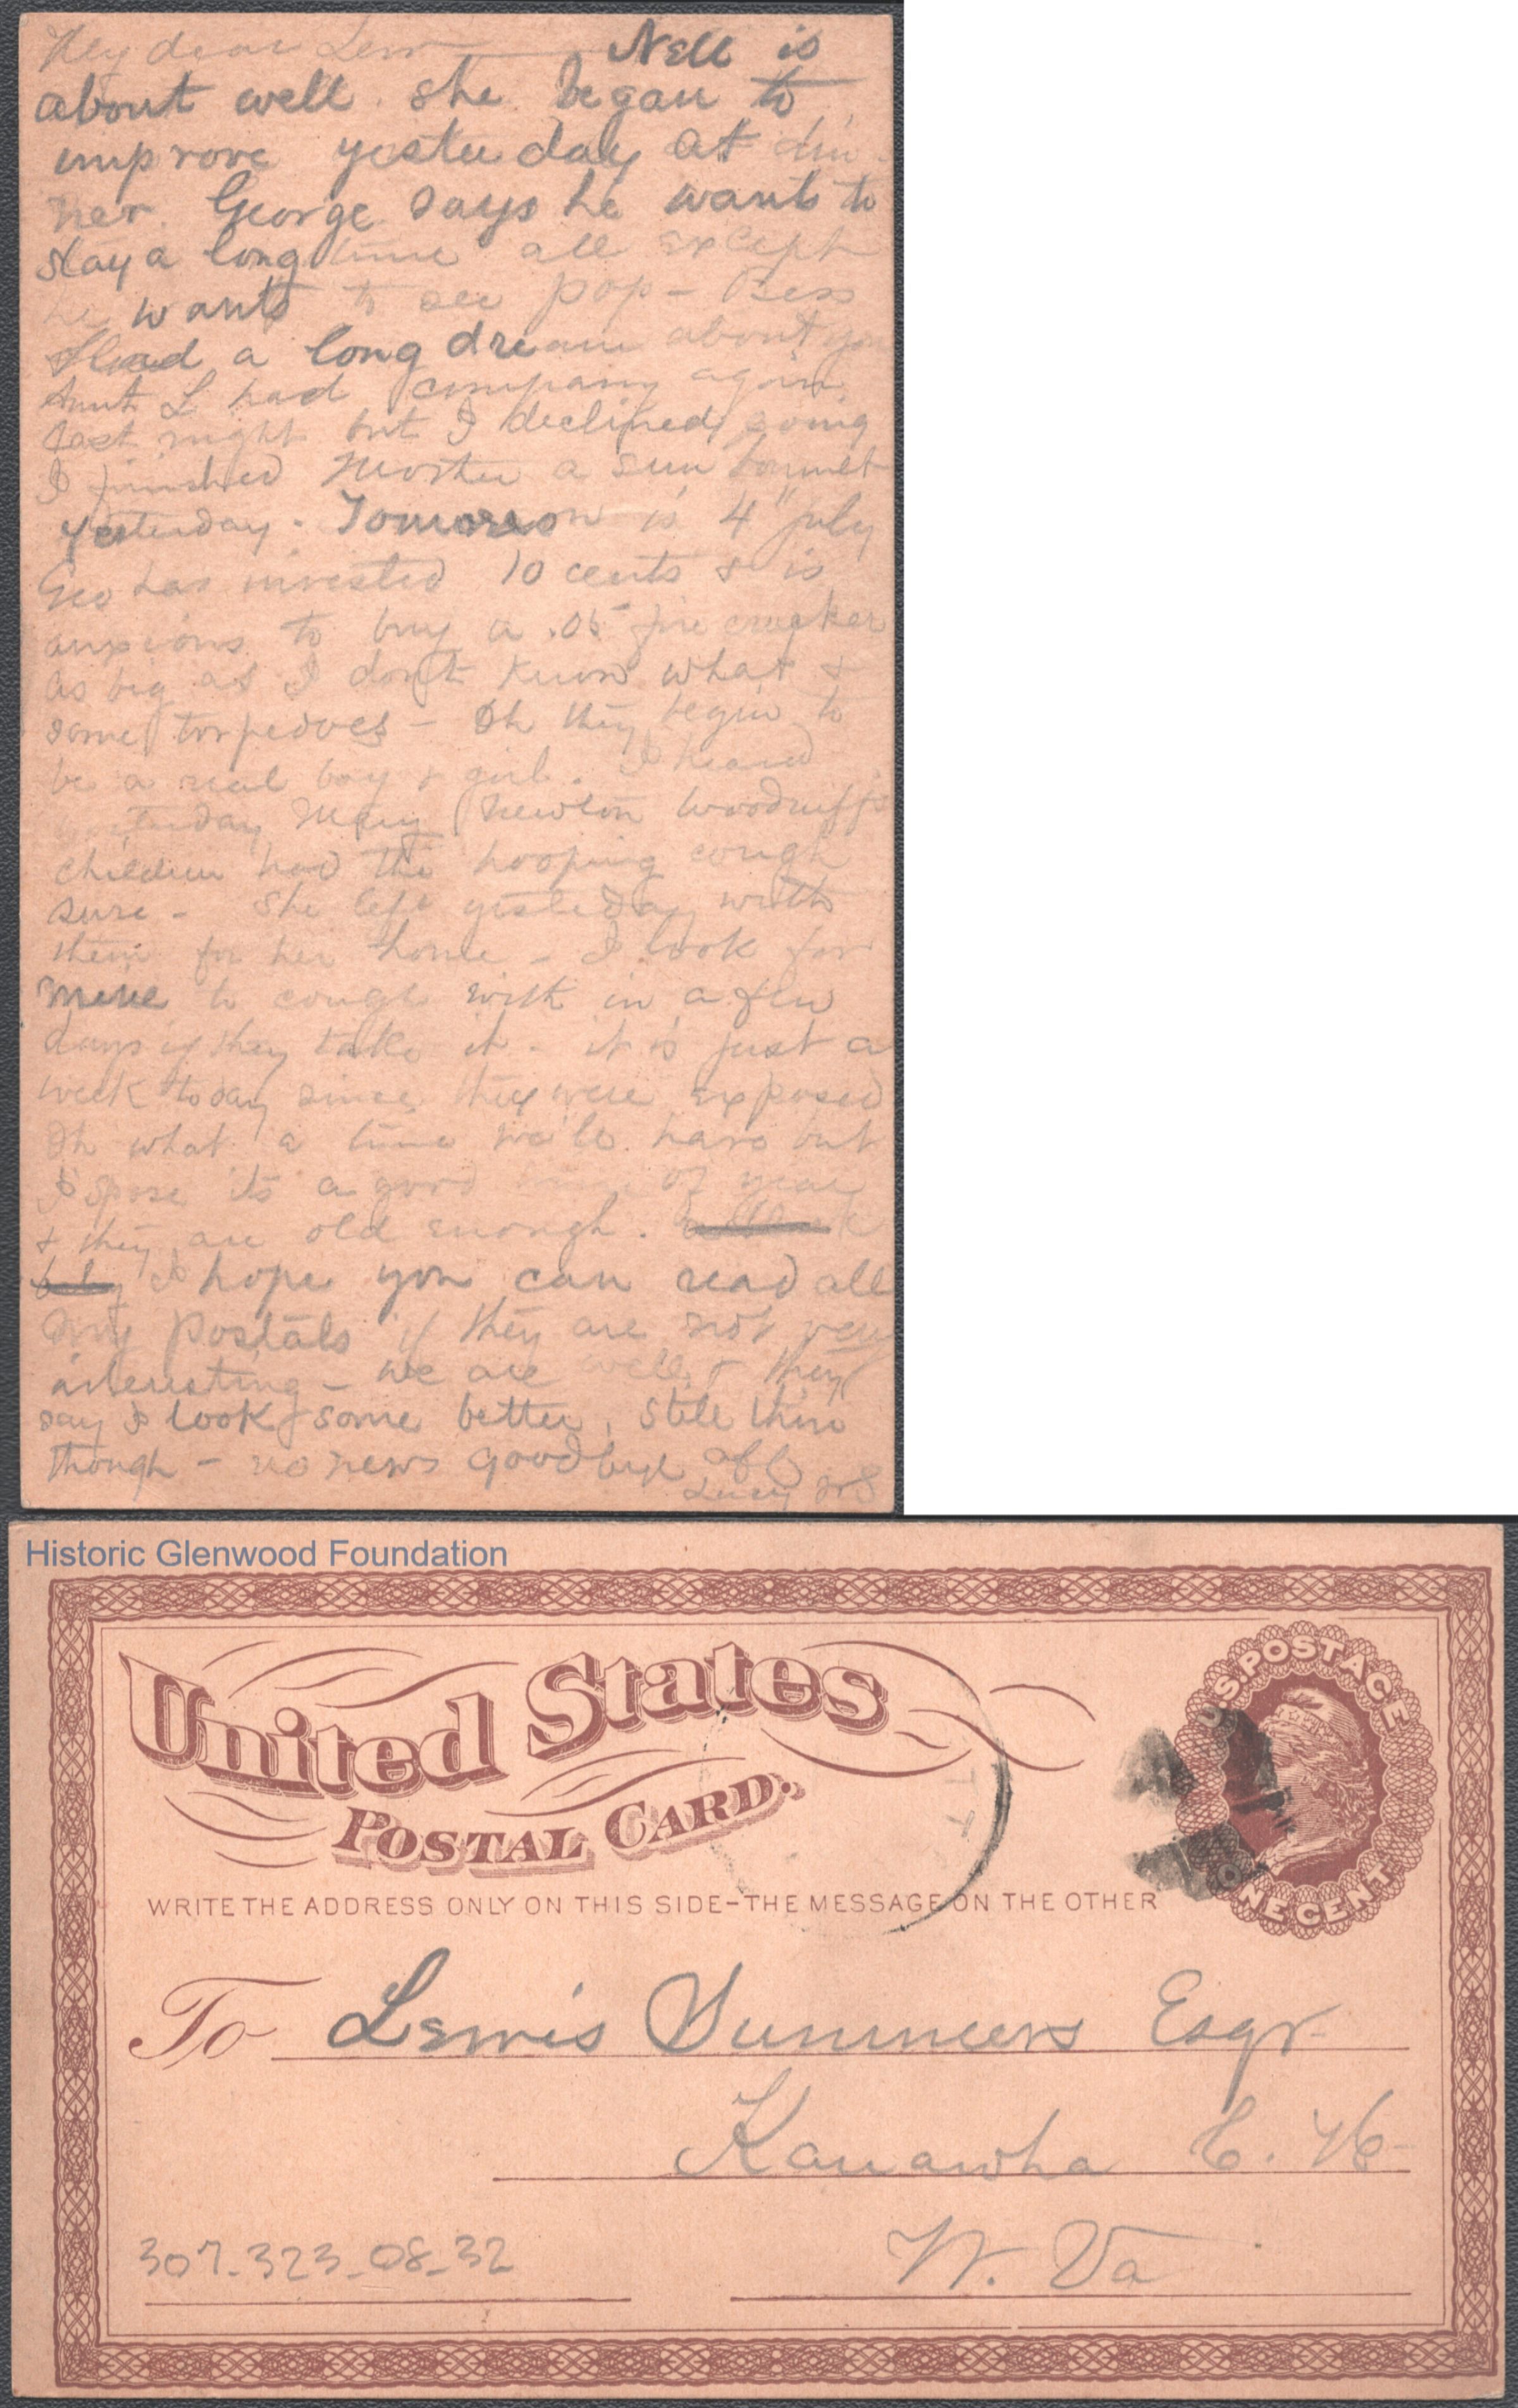 My dear Lew — Nell is
about well she began to
improve yesterday at din-
ner. George says he wants to
stay a long time all except
he wants to see Pop - Bess
had a long dream about you
Aunt L had company again
last night but I declined going
I finished Mother a sun bonnet
yesterday. Tomorrow is 4" July
Geo has invested 10 cents & is
anxious to buy a .05 fire cracker
as big as I don't know what &
some torpedoes - Oh they begin to
be a real boy & girl. I heard
yesterday Mary Newton Woodruff's
children had the hooping cough
sure - She left yesterday with
them for her home - I look for
mine to cough with in a few
days if they take it - it is just a
week today since they were exposed
Oh what a time we'll have but
I spose its a good time of year
& they are old enough.
I hope you can read all
my postals if they are not very
interesting - we are well & they
say I look some better, still thin
though - no news goodbye aff
Lucy WS
Historic Glenwood Foundation
United States
POSTAL CARD.
U.S. POSTAGE
ONE CENT
WRITE THE ADDRESS ONLY ON THIS SIDE-THE MESSAGE ON THE OTHER
To Lewis Summers Esqr
Kanawha C. H.
W. Va
307-323-08-32